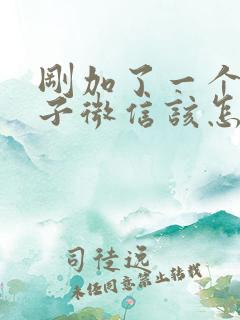 刚加了一个
子微信该怎
司徒远
未经同意禁止转载